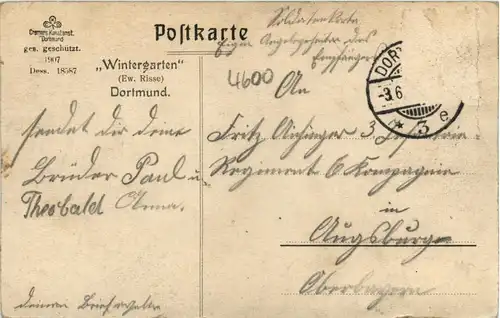 Cramers Kunstanst.
Dortmund
ges. geschützt.
1907
Dess. 18587
Postkarte
„Wintergarten"
(Ew. Risse)
Dortmund.
Soldatenkarte
Eigene Angelegenheit des
Empfängers
4600
An
DORT
-3.6
* 3 e
Fritz 3. Infanterie-
Regiment 6 Kompagnie
in
Augsburg
Oberbayern
sendet dir deine
Brüder Paul u.
Theobald Anna.
Brief erhalten